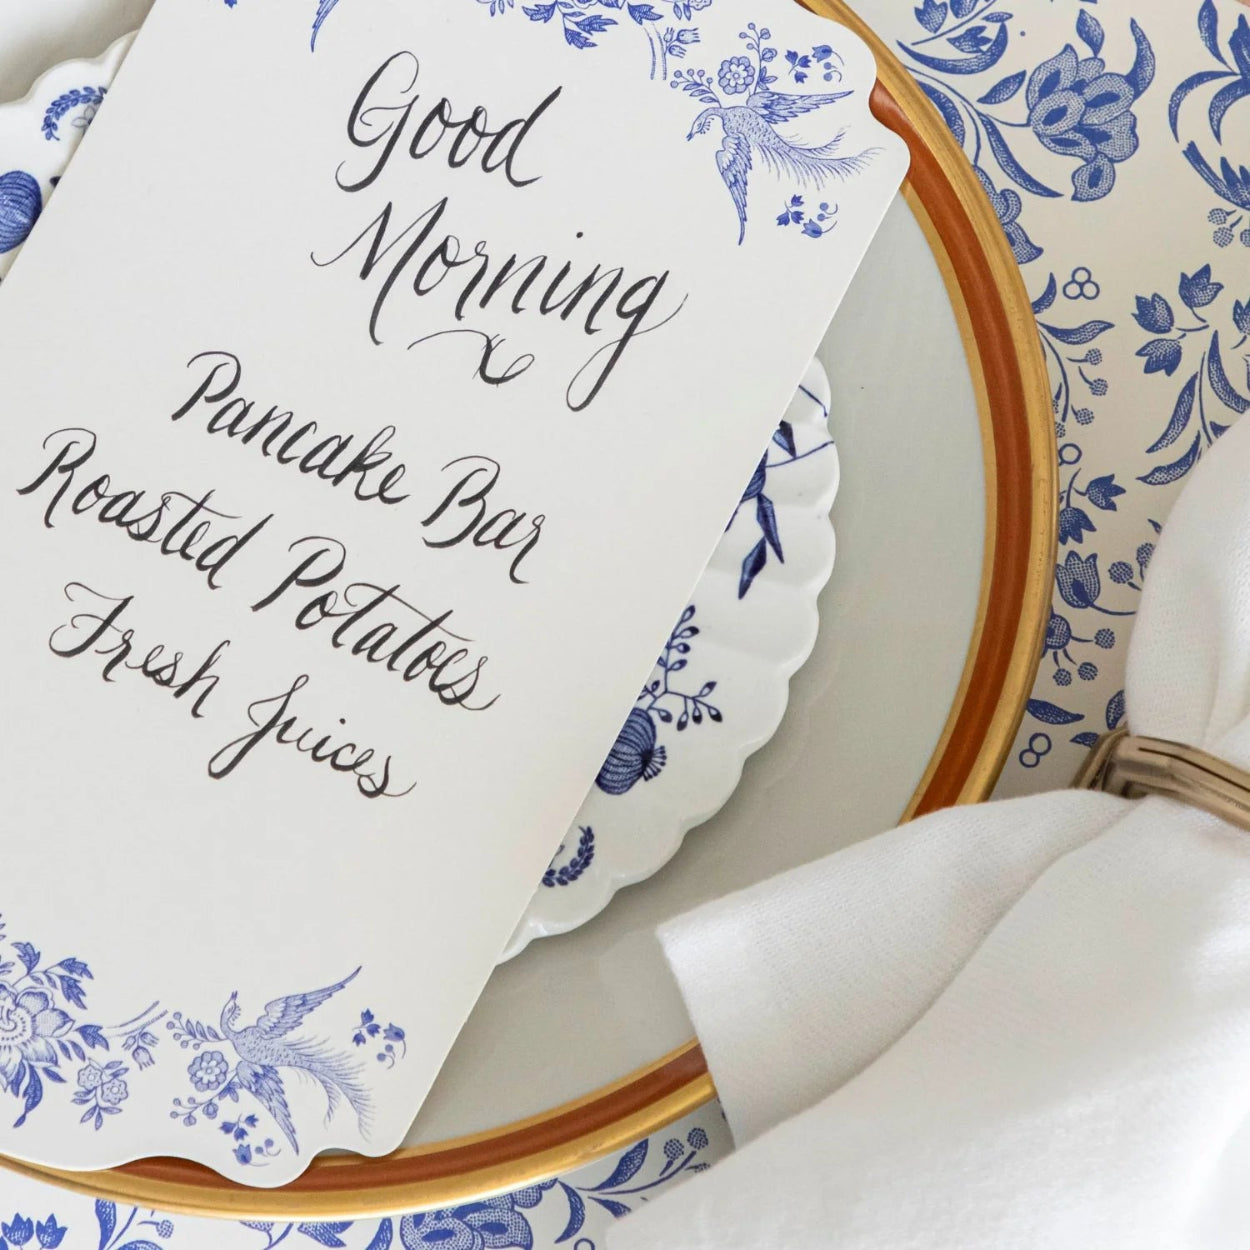 Good
Morning
Pancake Bar
Roasted Potatoes
Fresh Juices